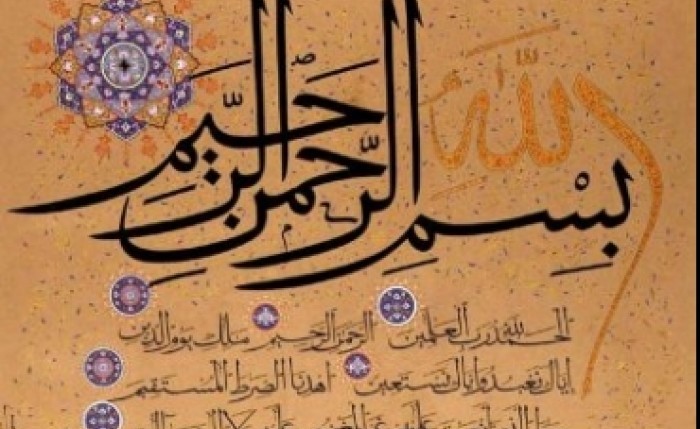 بِسْمِ اللّٰه الرَّحمٰن الرَّحِيمِ
الحمد لله رب العلمين الرحمن الرحيم ملك يوم الدين
اياك نعبد واياك نستعين اهدنا الصرط المستقيم